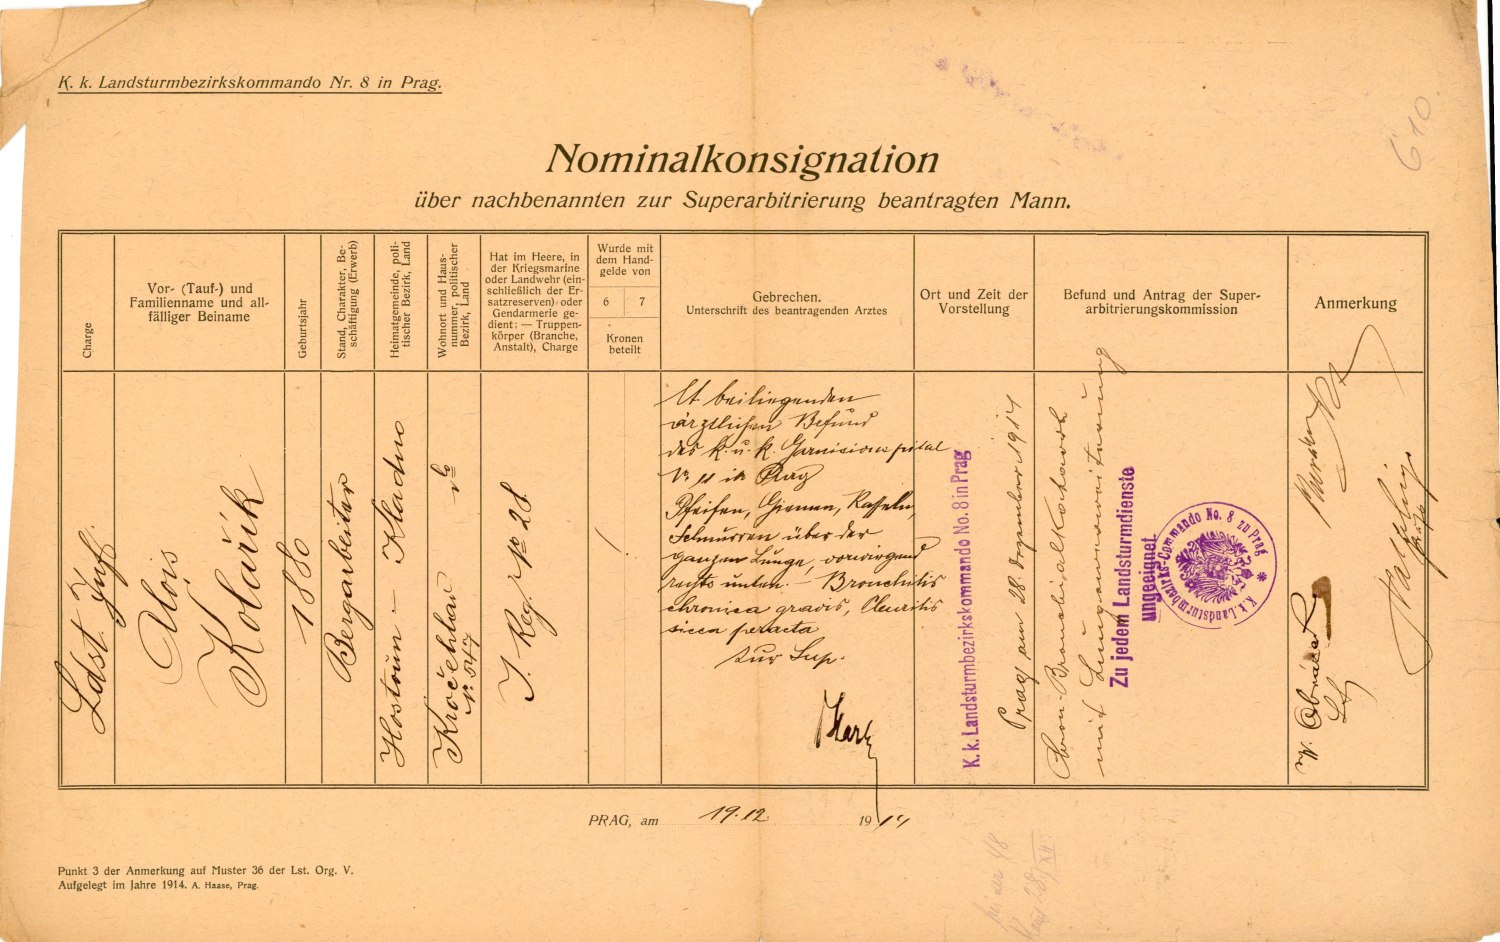 K. k. Landsturmbezirkskommando Nr. 8 in Prag.
610.
Nominalkonsignation
über nachbenannten zur Superarbitrierung beantragten Mann.
Charge
Vor- (Tauf-) und
Familienname und all-
fälliger Beiname
Geburtsjahr
Stand, Charakter, Be-
schäftigung (Erwerb)
Heimatgemeinde, poli-
tischer Bezirk, Land
Wohnort und Haus-
nummer, politischer
Bezirk, Land
Hat im Heere, in
der Kriegsmarine
oder Landwehr (ein-
schließlich der Er-
satzreserven) oder
Gendarmerie ge-
dient: — Truppen-
körper (Branche,
Anstalt), Charge
Wurde mit
dem Hand-
gelde von
6 7
Kronen
beteilt
Gebrechen.
Unterschrift des beantragenden Arztes
Ort und Zeit der
Vorstellung
Befund und Antrag der Super-
arbitrierungskommission
Anmerkung
Ldst. Inft.
Alois
Kolařík
1880
Bergarbeiter
Hostouň — Kladno
Kročehlav
Nr. 547
J. Reg. No 28.
lt beiliegenden
ärztlichen Befund
des k. u. k. Garnisionsspital
Nr 11 in Prag
Pfeifen, Giemen, Rasseln,
Schnurren über der
ganzen Lunge, vorwiegend
rechts unten. — Bronchitis
chronica gravis, Pleuritis
sicca peracta
zur Sup.
K. k. Landsturmbezirkskommando No. 8 in Prag
Prag am 28. Dezember 1914
Chron. Bronchialkatarrh
mit Lungenerweiterung
Zu jedem Landsturmdienste
ungeeignet.
K. k. Landsturmbezirks-Commando No. 8 zu Prag
PRAG, am 19. 12. 1914
Punkt 3 der Anmerkung auf Muster 36 der Lst. Org. V.
Aufgelegt im Jahre 1914. A. Haase, Prag.